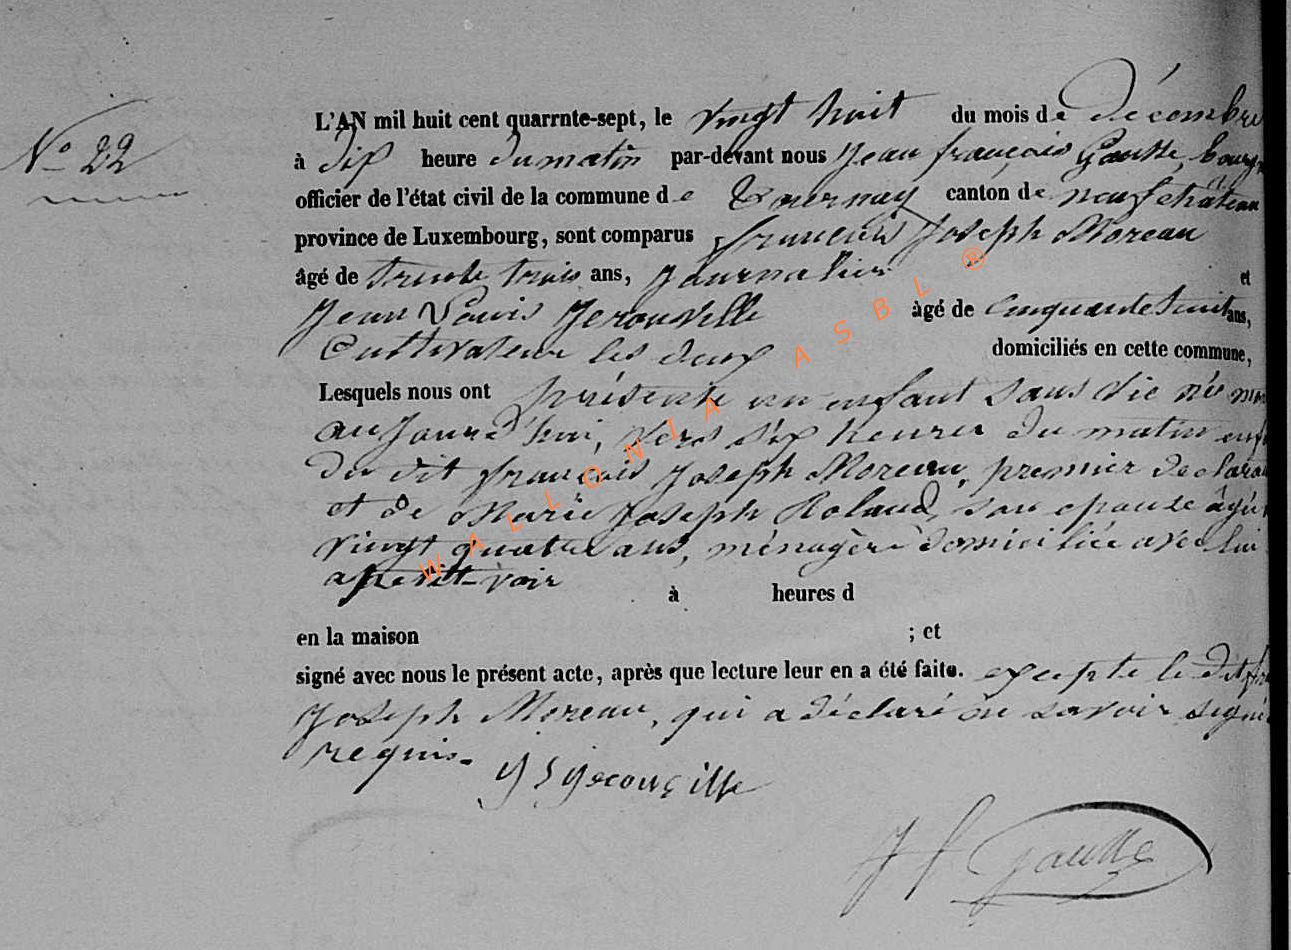 N° 22
L'AN mil huit cent quarrnte-sept, le vingt huit du mois de décembre
à dix heure du matin par-devant nous Jean françois Gausse,
officier de l'état civil de la commune de Tournay canton de neufchâteau
province de Luxembourg, sont comparus françois Joseph Moreau
âgé de trente trois ans, Journalier et
Jean Louis Jerouville âgé de Cinquante huit ans,
Cultivateur les deux domiciliés en cette commune,
Lesquels nous ont présenté un enfant sans vie née
aujourd'hui, vers six heures du matin
du dit françois Joseph Moreau, premier
et de Marie Joseph Roland, son epouse âgée
vingt quatre ans, ménagère domiciliée avec lui
a petit-voir à heures d
en la maison ; et
signé avec nous le présent acte, après que lecture leur en a été faite. excepté le dit
Joseph Moreau, qui a déclaré ne savoir signé
requis.
J L Jerouville
J f Gausse
WALLONIA ASBL ®